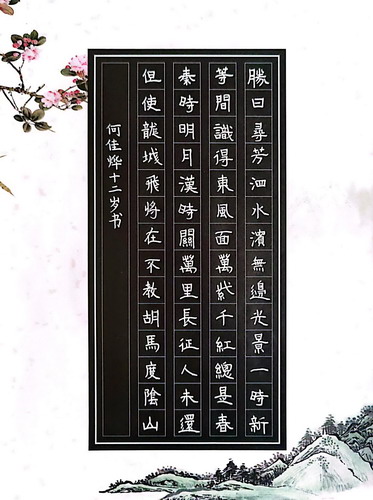 勝日尋芳泗水濱無邊光景一時新
等閒識得東風面萬紫千紅總是春
秦時明月漢時關萬里長征人未還
但使龍城飛將在不教胡馬度陰山
何佳烨十二岁书